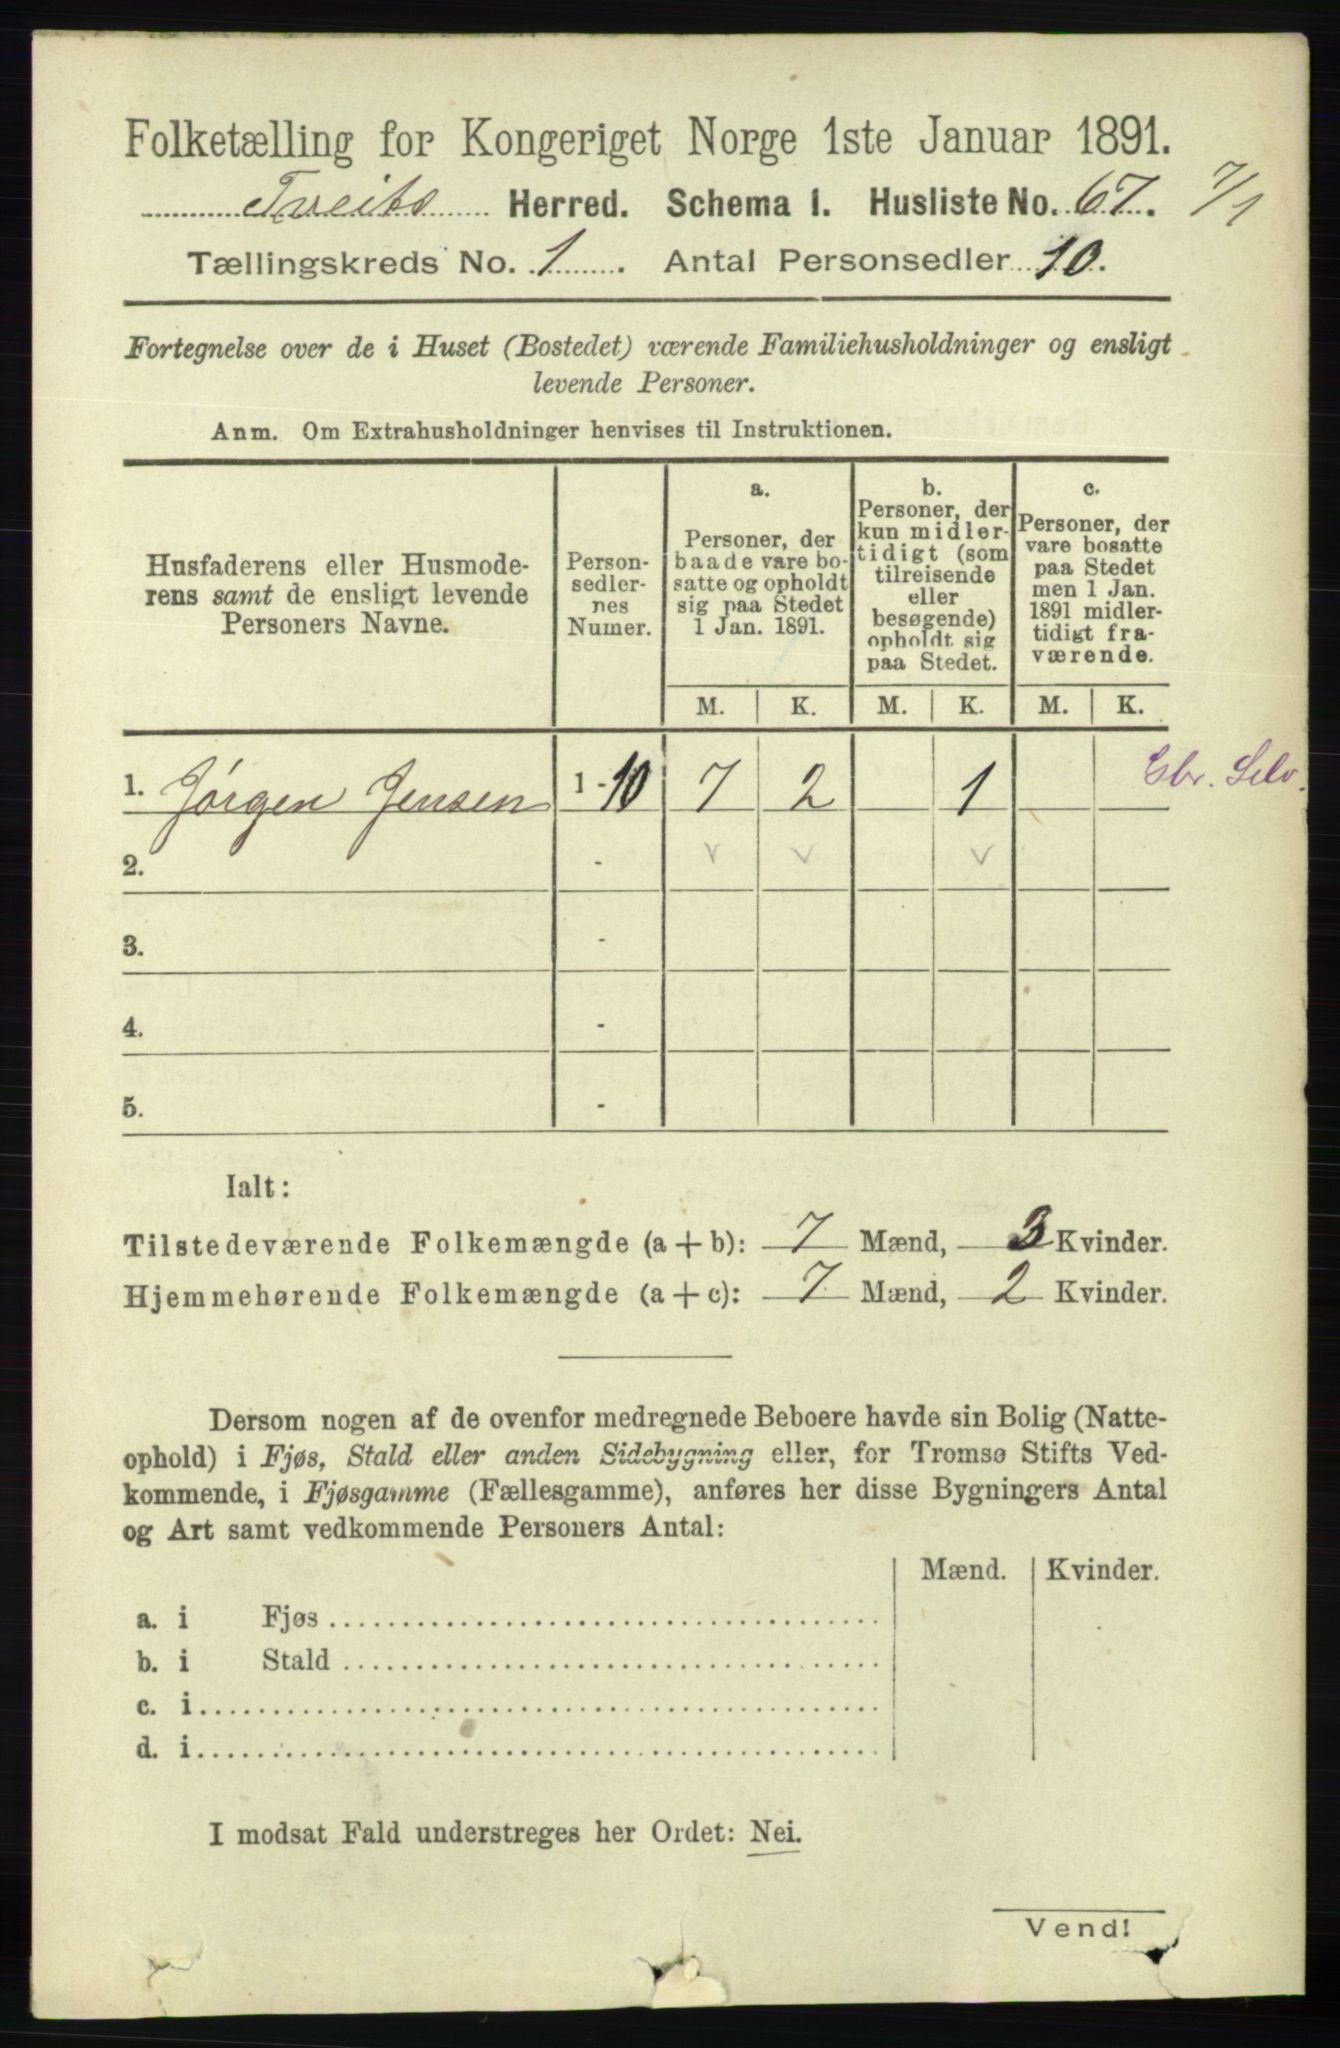 Folketælling for Kongeriget Norge 1ste Januar 1891.
Tveits Herred. Schema I. Husliste No. 67. 7/1
Tællingskreds No. 1. Antal Personsedler 10.
Fortegnelse over de i Huset (Bostedet) værende Familiehusholdninger og ensligt
levende Personer.
Anm. Om Extrahusholdninger henvises til Instruktionen.
Husfaderens eller Husmode-
rens samt de ensligt levende
Personers Navne.
Person-
sedler-
nes
Numer.
a.
Personer, der
baade vare bo-
satte og opholdt
sig paa Stedet
1 Jan. 1891.
b.
Personer, der
kun midler-
tidigt (som
tilreisende
eller
besøgende)
opholdt sig
paa Stedet.
c.
Personer, der
vare bosatte
paa Stedet
men 1 Jan.
1891 midler-
tidigt fra-
værende.
M. K. M. K. M. K.
1. Jørgen Jensen 1 - 10 7 2 1
2. -
3. -
4. -
5. -
Ialt:
Tilstedeværende Folkemængde (a + b): 7 Mænd, 3 Kvinder.
Hjemmehørende Folkemængde (a + c): 7 Mænd, 2 Kvinder.
Dersom nogen af de ovenfor medregnede Beboere havde sin Bolig (Natte-
ophold) i Fjøs, Stald eller anden Sidebygning eller, for Tromsø Stifts Ved-
kommende, i Fjøsgamme (Fællesgamme), anføres her disse Bygningers Antal
og Art samt vedkommende Personers Antal:
Mænd. Kvinder.
a. i Fjøs
b. i Stald
c. i
d. i
I modsat Fald understreges her Ordet: Nei.
Vend!